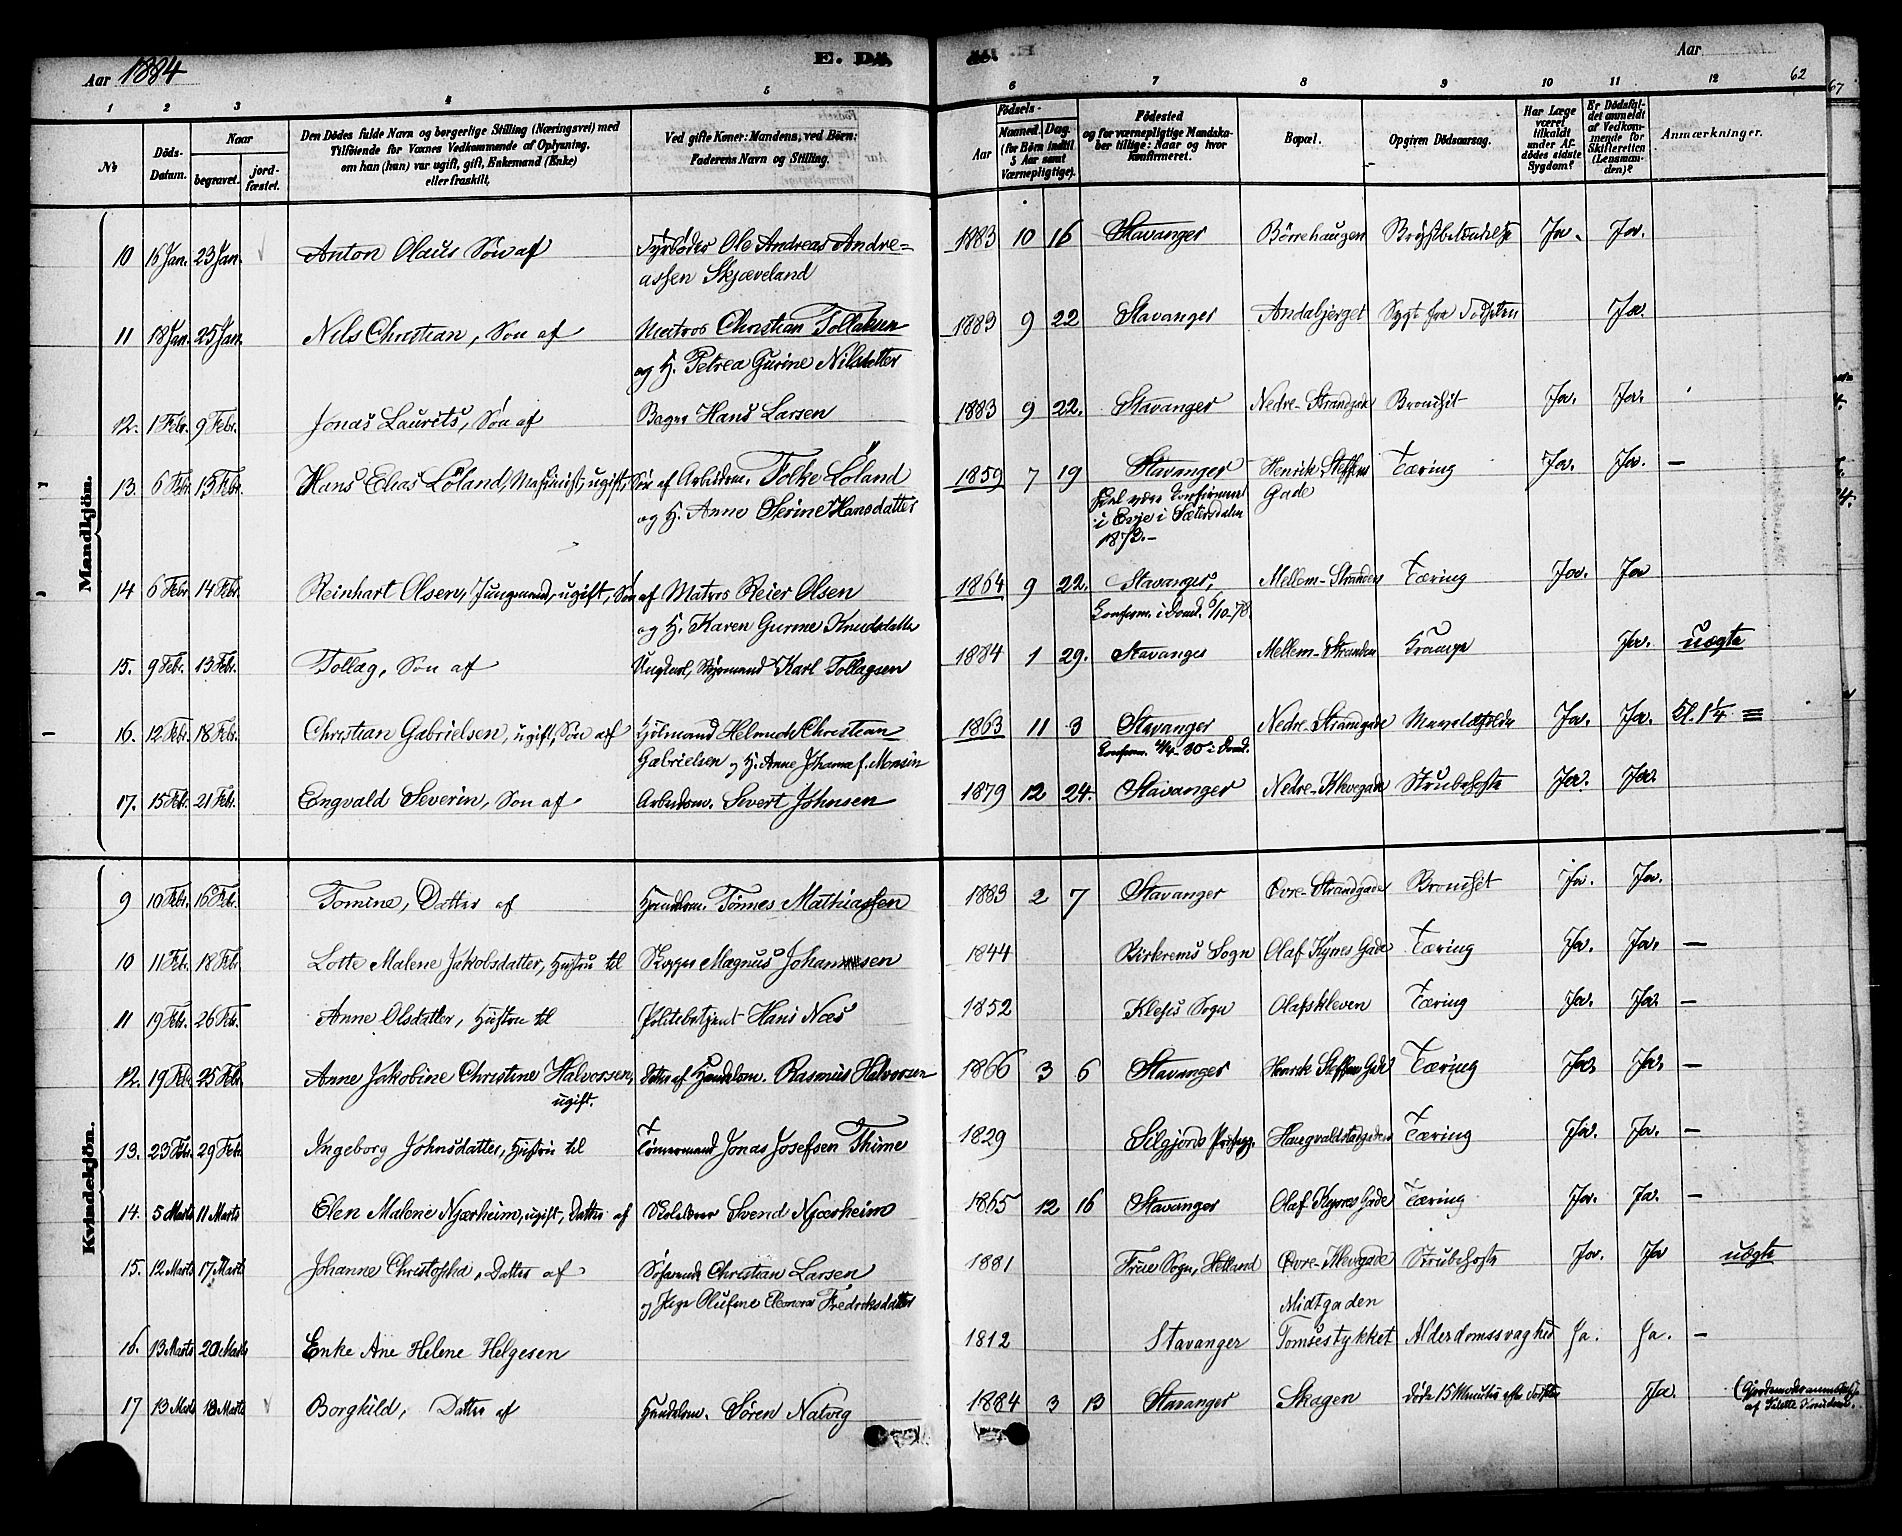 Aar 1884
E. Dö,
de.
Aar
62
67
1 2 3 4 5 6 7 8 9 10 11 12
No
Döds-Datum.
Naar
begravet.
jord-fæstet.
Den Dödes fulde Navn og borgerlige Stilling (Næringsvei) med
Tilföiende for Voxnes Vedkommende af Oplysning,
om han (hun) var ugift, gift, Enkemand (Enke)
eller fraskilt.
Ved gifte Koner: Mandens, ved Börn:
Faderens Navn og Stilling.
Födsels-
Aar
Maaned. Dag.
(for Börn indtil
5 Aar samt
Værnepligtige).
Födested
og for værnepligtige Mandska-
ber tillige: Naar og hvor
konfirmeret.
Bopæl.
Opgiven Dödsaarsag.
Har Læge
været
tilkaldt
under Af-
dödes sidste
Sygdom?
Er Dödsfal-
det anmeldt
af Vedkom-
mende for
Skifteretten
(Lensman-
den)?
Anmærkninger.
Mandkjön.
10 16 Jan. 23 Jan. Anton Olaus Søn af Fyrbøder Ole Andreas Andre= 1883 10 16 Stavanger Börrehaugen Ja. Ja.
assen Skjæveland
11 18 Jan. 25 Jan. Nils Christian, Søn af Matros Christian Tollaksen 1883 9 22 Stavanger Andabjerget Sygt fra Fødselen Ja.
og H. Petrea Gurine Nilsdatter
12. 1 Febr. 9 Febr. Jonas Laurits, Søn af Bager Hans Larsen 1883 9 22. Stavanger Nedre-Strandgade Bronchit Ja. Ja.
13. 6 Febr. 13 Febr. Hans Elias Löland, Maskinist, ugift, Søn af Arbeidsm. Folke Löland 1859 7 19 Stavanger Henrik Steffens Tæring Ja. Ja. —
og H. Anne Serine Hansdatter Skal være konfirmeret Gade
i Evje i Sætersdalen
187
14 6 Febr. 14 Febr. Reinhart Olsen, Jungmand, ugift, Søn af Matros Reier Olsen 1864 9 22. Stavanger, Mellem-Stranden Tæring Ja. Ja
og H. Karen Gurine Knudsdatter Konfirm. i Domk. 6/10-78.
15. 9 Febr. 13 Febr. Tollag, Søn af Ungkarl, Styrmand Karl Tollagsen 1884 1 29. Stavanger Mellem-Stranden Krampe Ja. uægte
16. 12 Febr. 18 Febr. Christian Gabrielsen, ugift, Søn af Helmich Christian 1863 11 3 Stavanger Nedre-Strandgade Ja. Ja. Kl. 1 1/4
Gabrielsen og H. Anne Johanna f. Monsen Konfirm. 4/4 80 i Domk.
17. 15 Feb. 21 Feb. Engvald Severin, Søn af Arbeidsm. Sivert Johnsen 1879 12 24. Stavanger Nedre-Klevegade Strubehoste Ja. Ja.
Kvindekjön.
9 10 Febr. 16 Febr. Tomine, Datter af Handelsm. Tönnes Mathiassen 1883 2 7 Stavanger Øvre-Strandgade Bronchit Ja. Ja.
10 11 Feb. 18 Feb. Lotte Malene Jakobsdatter, Hustru til Skipper Magnus Johannesen 1844 Birkrems Sogn Olaf Kyrres Gade Tæring Ja. Ja. —
11 19 Febr. 26 Febr. Anne Olsdatter, Hustru til Politibetjent Hans Næs 1852 Klepps Sogn Olafskleven Tæring Ja. Ja. —
12. 19 Febr. 25 Febr. Anne Jakobine Christine Halvorsen, Datter af Handelsm. Rasmus Halvorsen 1866 3 6 Stavanger Henrik Steffens Gade Tæring Ja. Ja. —
ugift.
13. 23 Febr. 29 Febr. Ingeborg Johnsdatter, Hustru til Tömmermand Jonas Josefsen Thime 1829 Haugvaldstadgaden Tæring Ja. Ja. —
14. 5 Marts 11 Marts Elen Malene Njærheim, ugift, Datter af Svend Njærheim 1865 12 16 Stavanger Olaf Kyrres Gade Tæring Ja. Ja. —
15. 12 Marts 17 Marts Johanne Christopha, Datter af Sømand Christian Larsen 1881 Frue Sogn, Hetland Øvre-Klevegade Strubehoste Ja. Ja uægte
og Pige Olufine Eleonora Fredriksdatter Midtgaden
16. 13 Marts 20 Marts Enke Ane Helene Helgesen 1812 Stavanger Tomsestykket Alderdomssvaghed Ja. Ja. —
17 13 Marts 18 Marts Borghild, Datter af Handelsm. Sören Natvig 1884 3 13 Stavanger Skagen døde 15 Minutter efter Fødselen Ja. (Gjordemoderanmeldelse
af